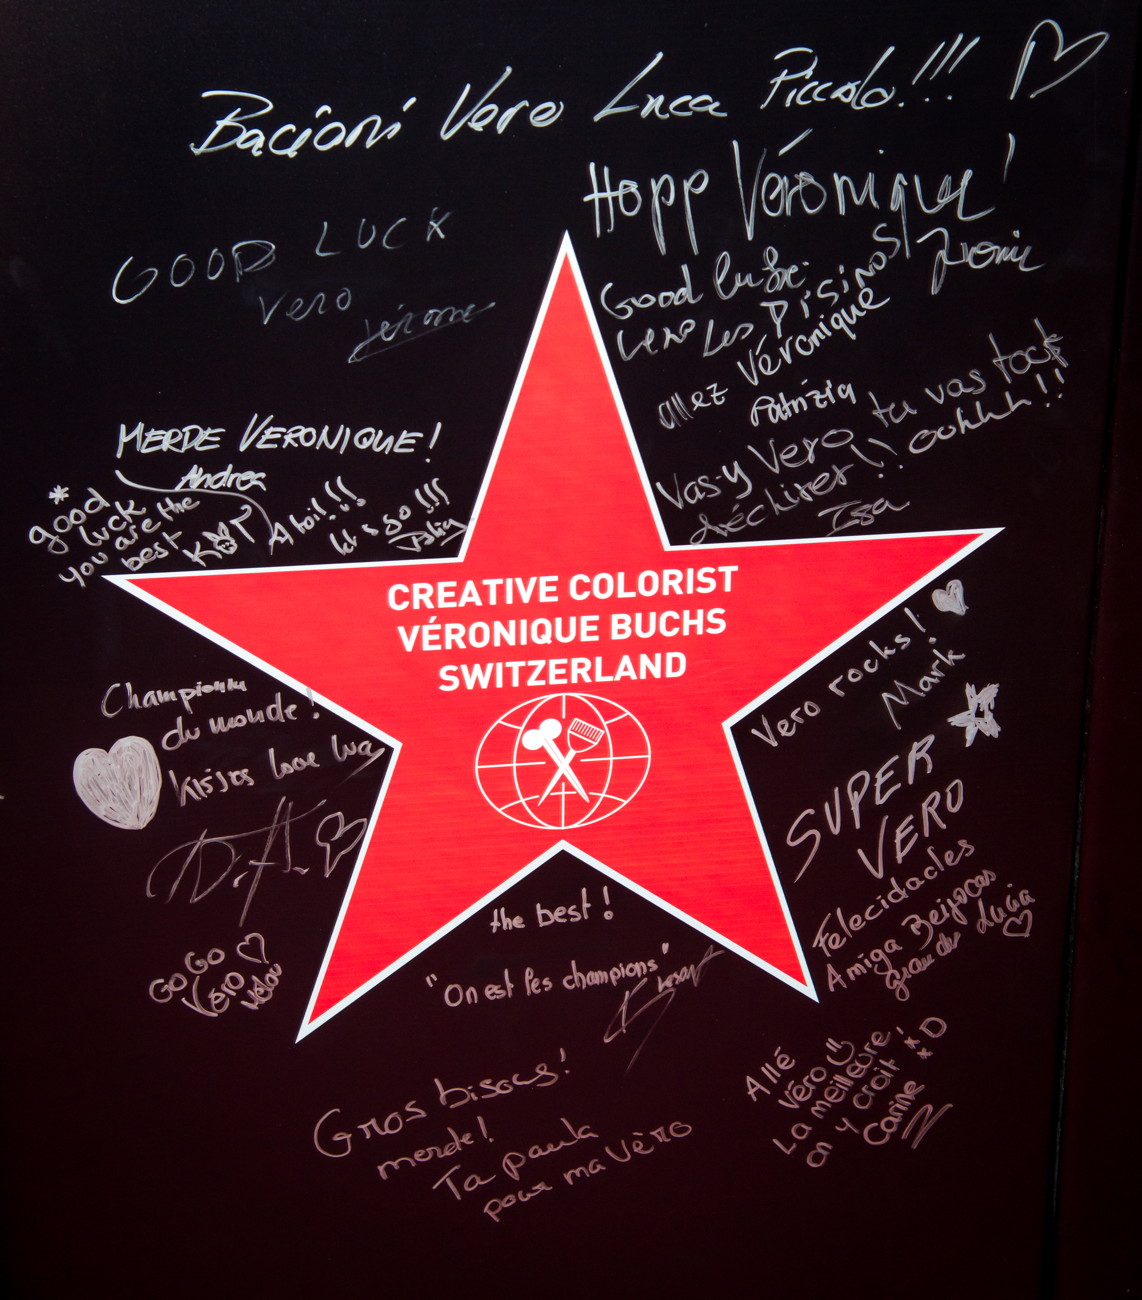 Bacioni Vero Luca Piccolo!!!
Hopp Véronique!
GOOD LUCK
Vero
Jérôme
Good
Vero Les Pisinos!
allez Véronique
Patrizia
Vas-y Vero tu vas tout
déchirer!! oohhh!!
Isa
MERDE VERONIQUE!
Andrea
good
luck
you are the
best
A toi!!!
let's go!!!
CREATIVE COLORIST
VÉRONIQUE BUCHS
SWITZERLAND
Championne
du monde!
kisses love Luca
D.A.
GO GO
Véro
Vero rocks!
Mark
SUPER
VERO
Felecidades
Amiga Beijocas
grandes Lucia
the best!
"On est les champions"
Gros bisous!
merde!
Ta paula
pour ma Véro
Allé
Véro
La meilleure
on y croit! **D
Carine